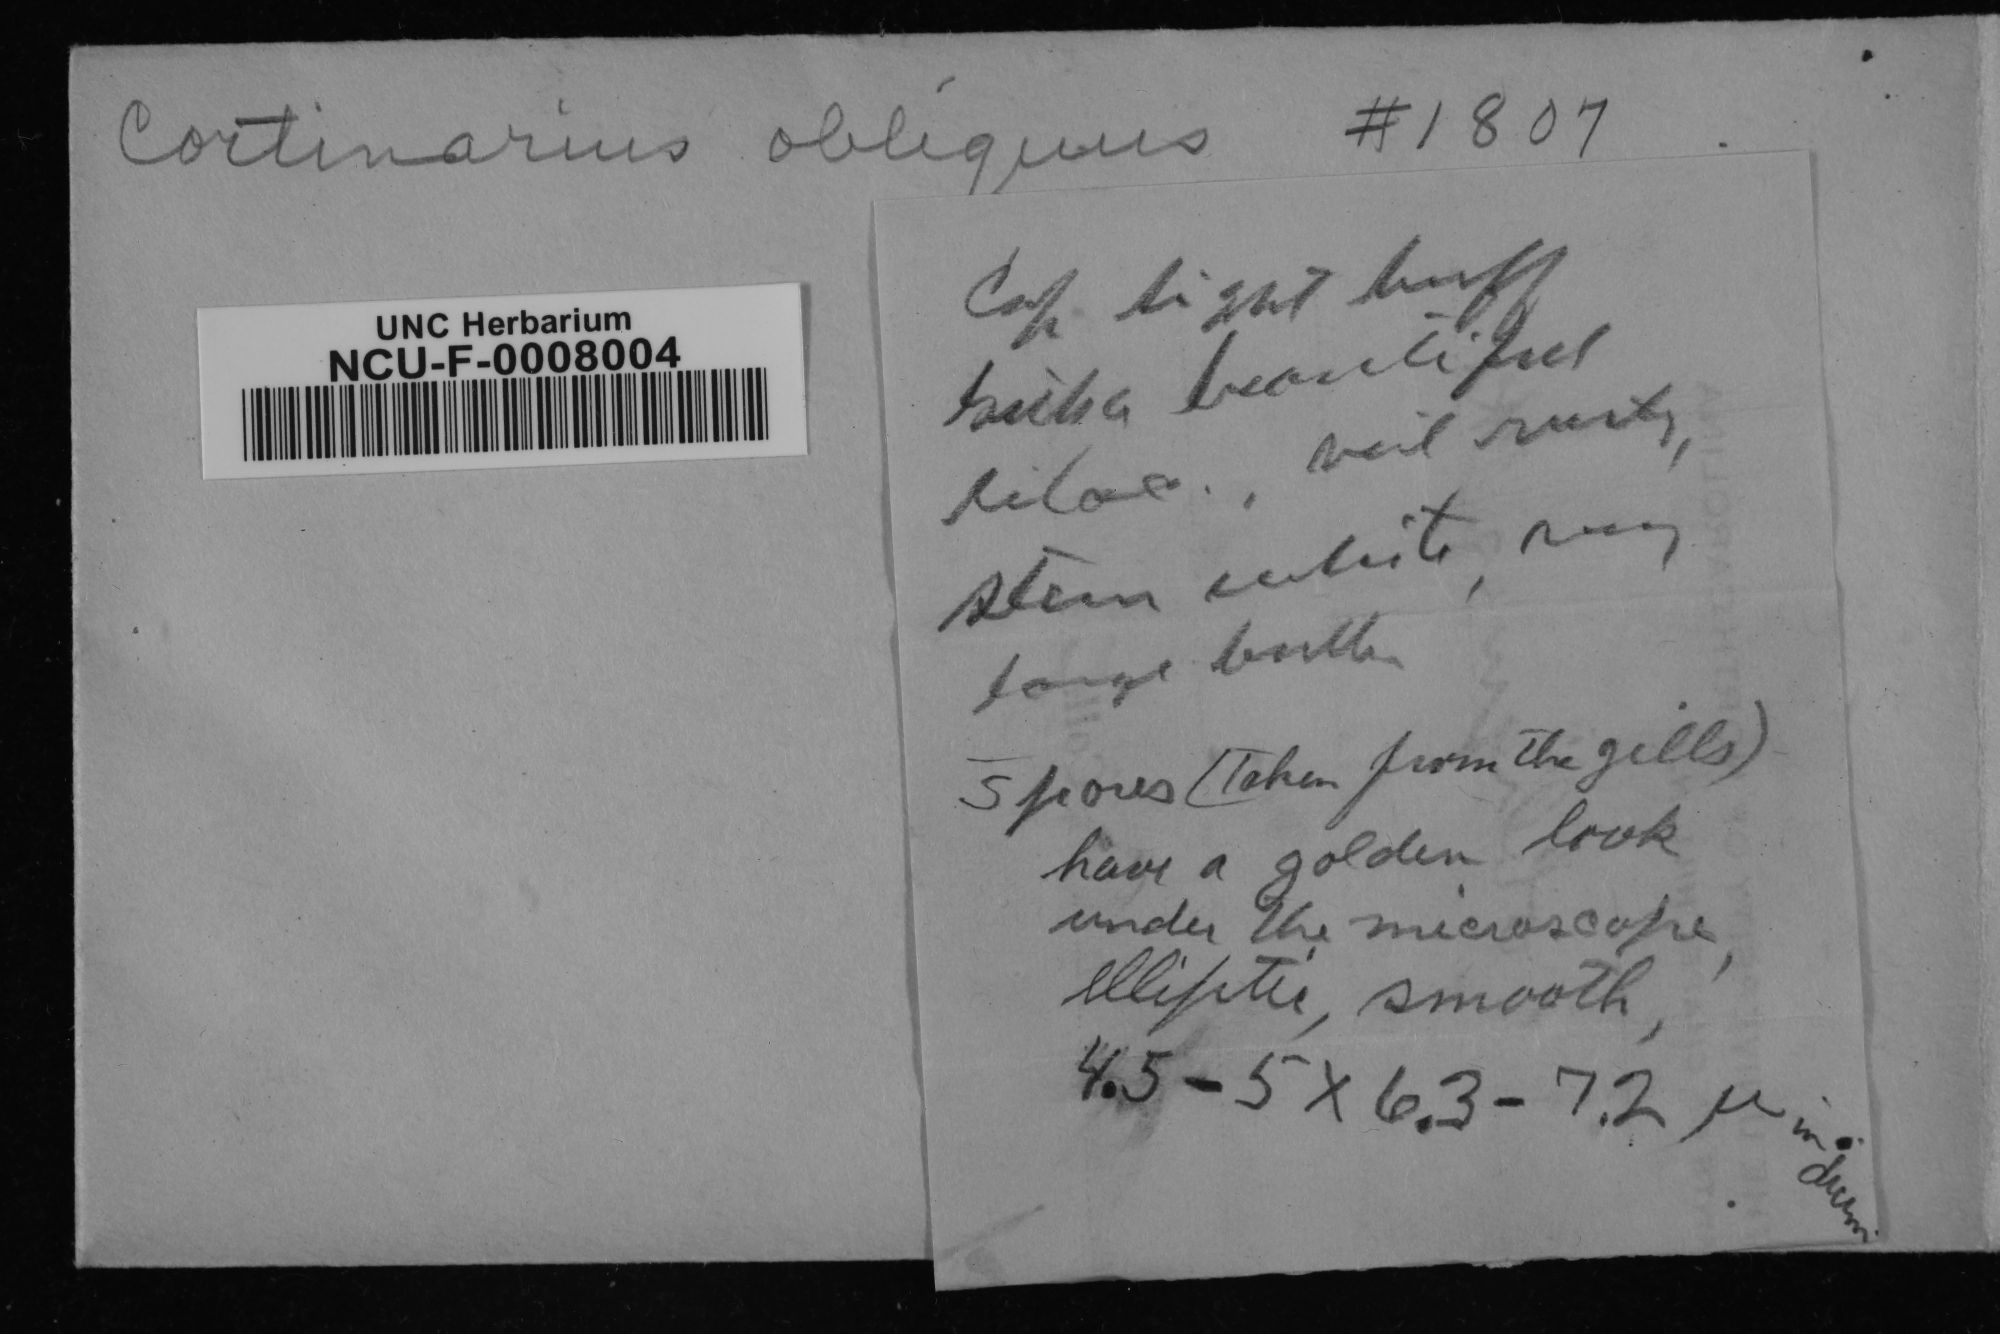 Cortinarius obliquus #1807
UNC Herbarium
NCU-F-0008004
Cap light buff
beautiful
lilac., veil rusty,
stem white, very
large bulb
Spores (Taken from the gills)
have a golden look
under the microscope,
elliptic, smooth,
4.5-5 X 6.3-7.2 µ in diam.